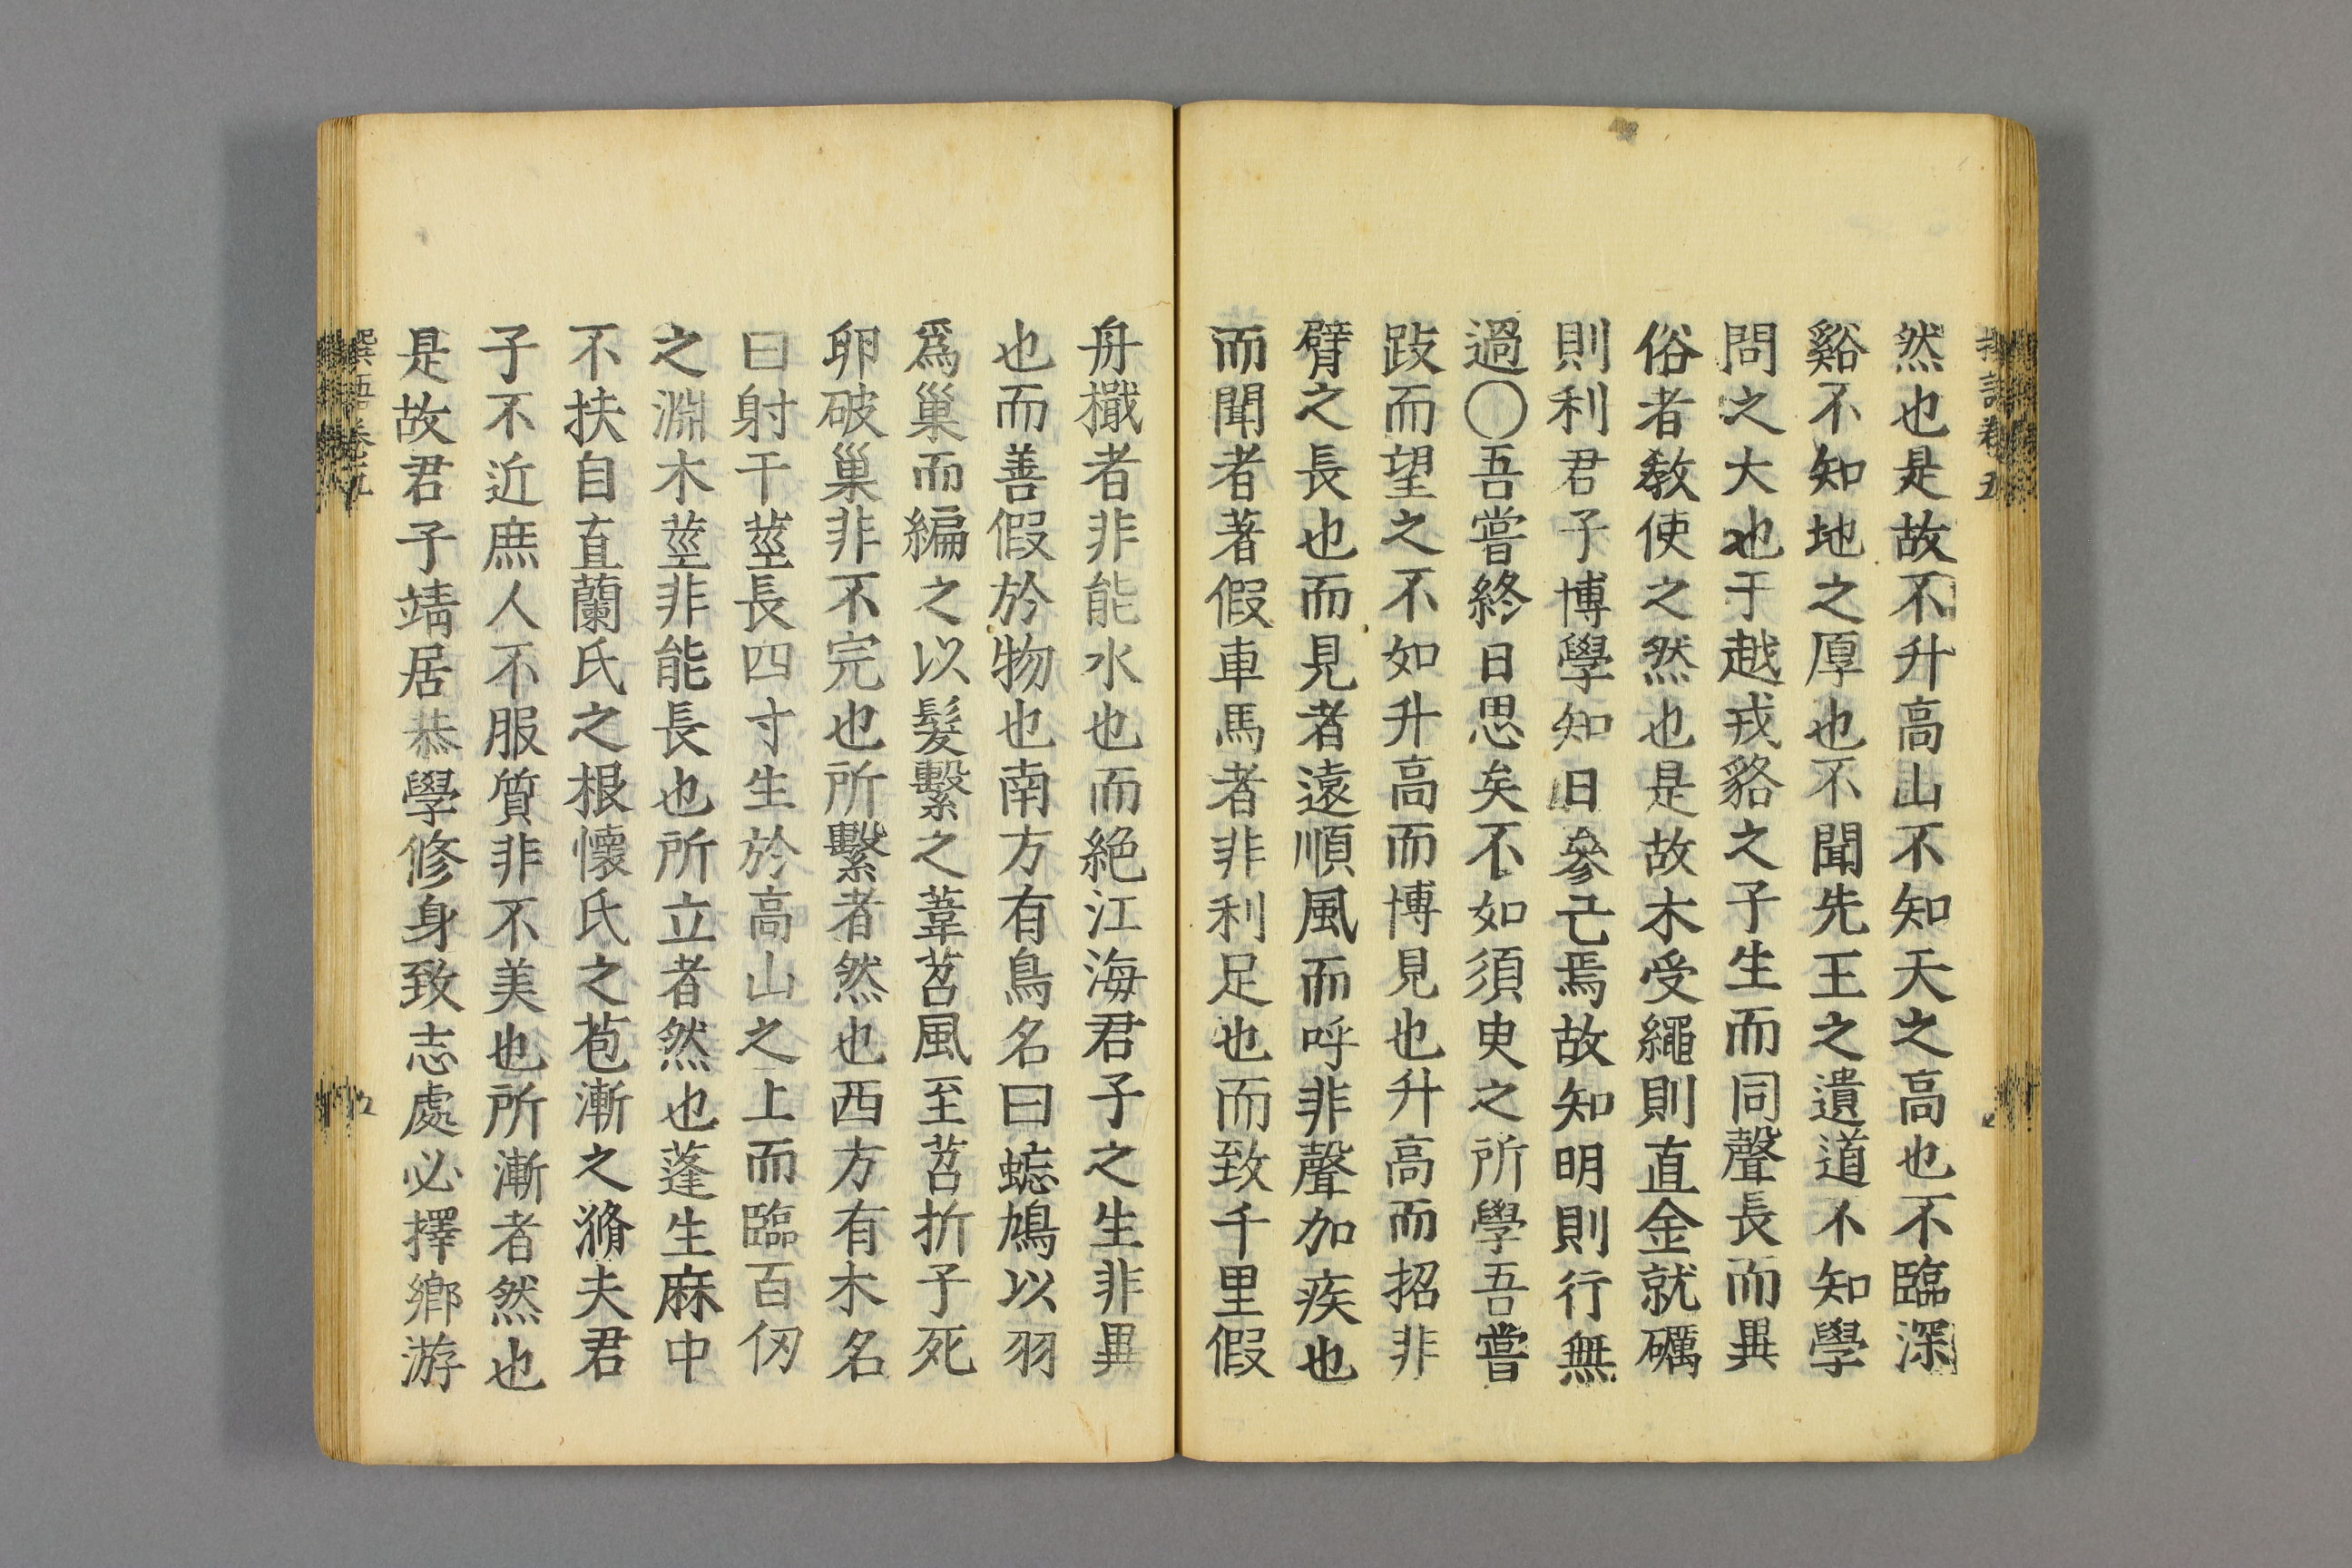 然也是故不升高山不知天之高也不臨深
谿不知地之厚也不聞先王之遺道不知學
問之大也于越戎貉之子生而同聲長而異
俗者教使之然也是故木受繩則直金就礪
則利君子博學知日參己焉故知明則行無
過○吾嘗終日思矣不如須臾之所學吾嘗
跂而望之不如升高而博見也升高而招非
臂之長也而見者遠順風而呼非聲加疾也
而聞者著假車馬者非利足也而致千里假
舟檝者非能水也而絶江海君子之生非異
也而善假於物也南方有鳥名曰蟋鳩以羽
爲巢而編之以髮繫之葦苕風至苕折子死
卵破巢非不完也所繫者然也西方有木名
曰射干莖長四寸生於高山之上而臨百仞
之淵木莖非能長也所立者然也蓬生麻中
不扶自直蘭氏之根懷氏之苞漸之滫夫君
子不近庶人不服質非不美也所漸者然也
是故君子靖居恭學修身致志處必擇鄉游
撰語卷五